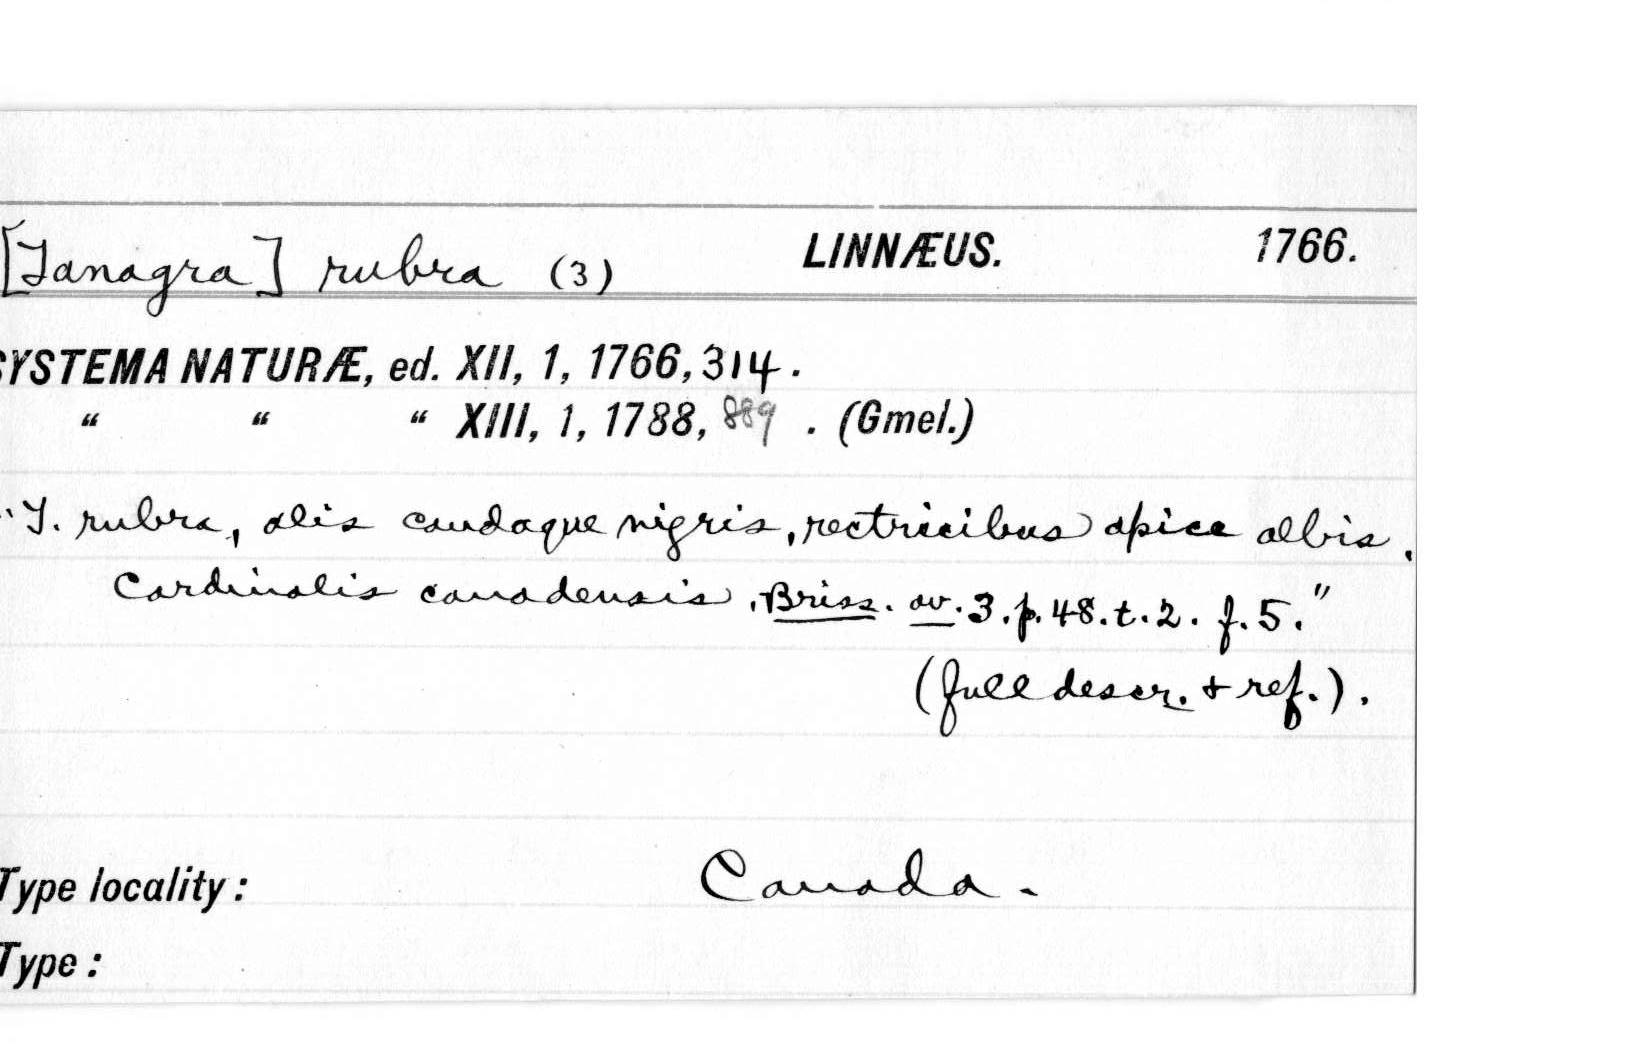 [Tanagra] rubra (3) LINNÆUS. 1766.
SYSTEMA NATURÆ, ed. XII, 1, 1766, 314.
“ “ “ XIII, 1, 1788, 889 . (Gmel.)
"T. rubra, alis caudaque nigris, rectricibus apice albis.
Cardinalis canadensis, Briss. av. 3. p. 48. t. 2. f. 5."
(full descr. + ref.).
Type locality: Canada.
Type: